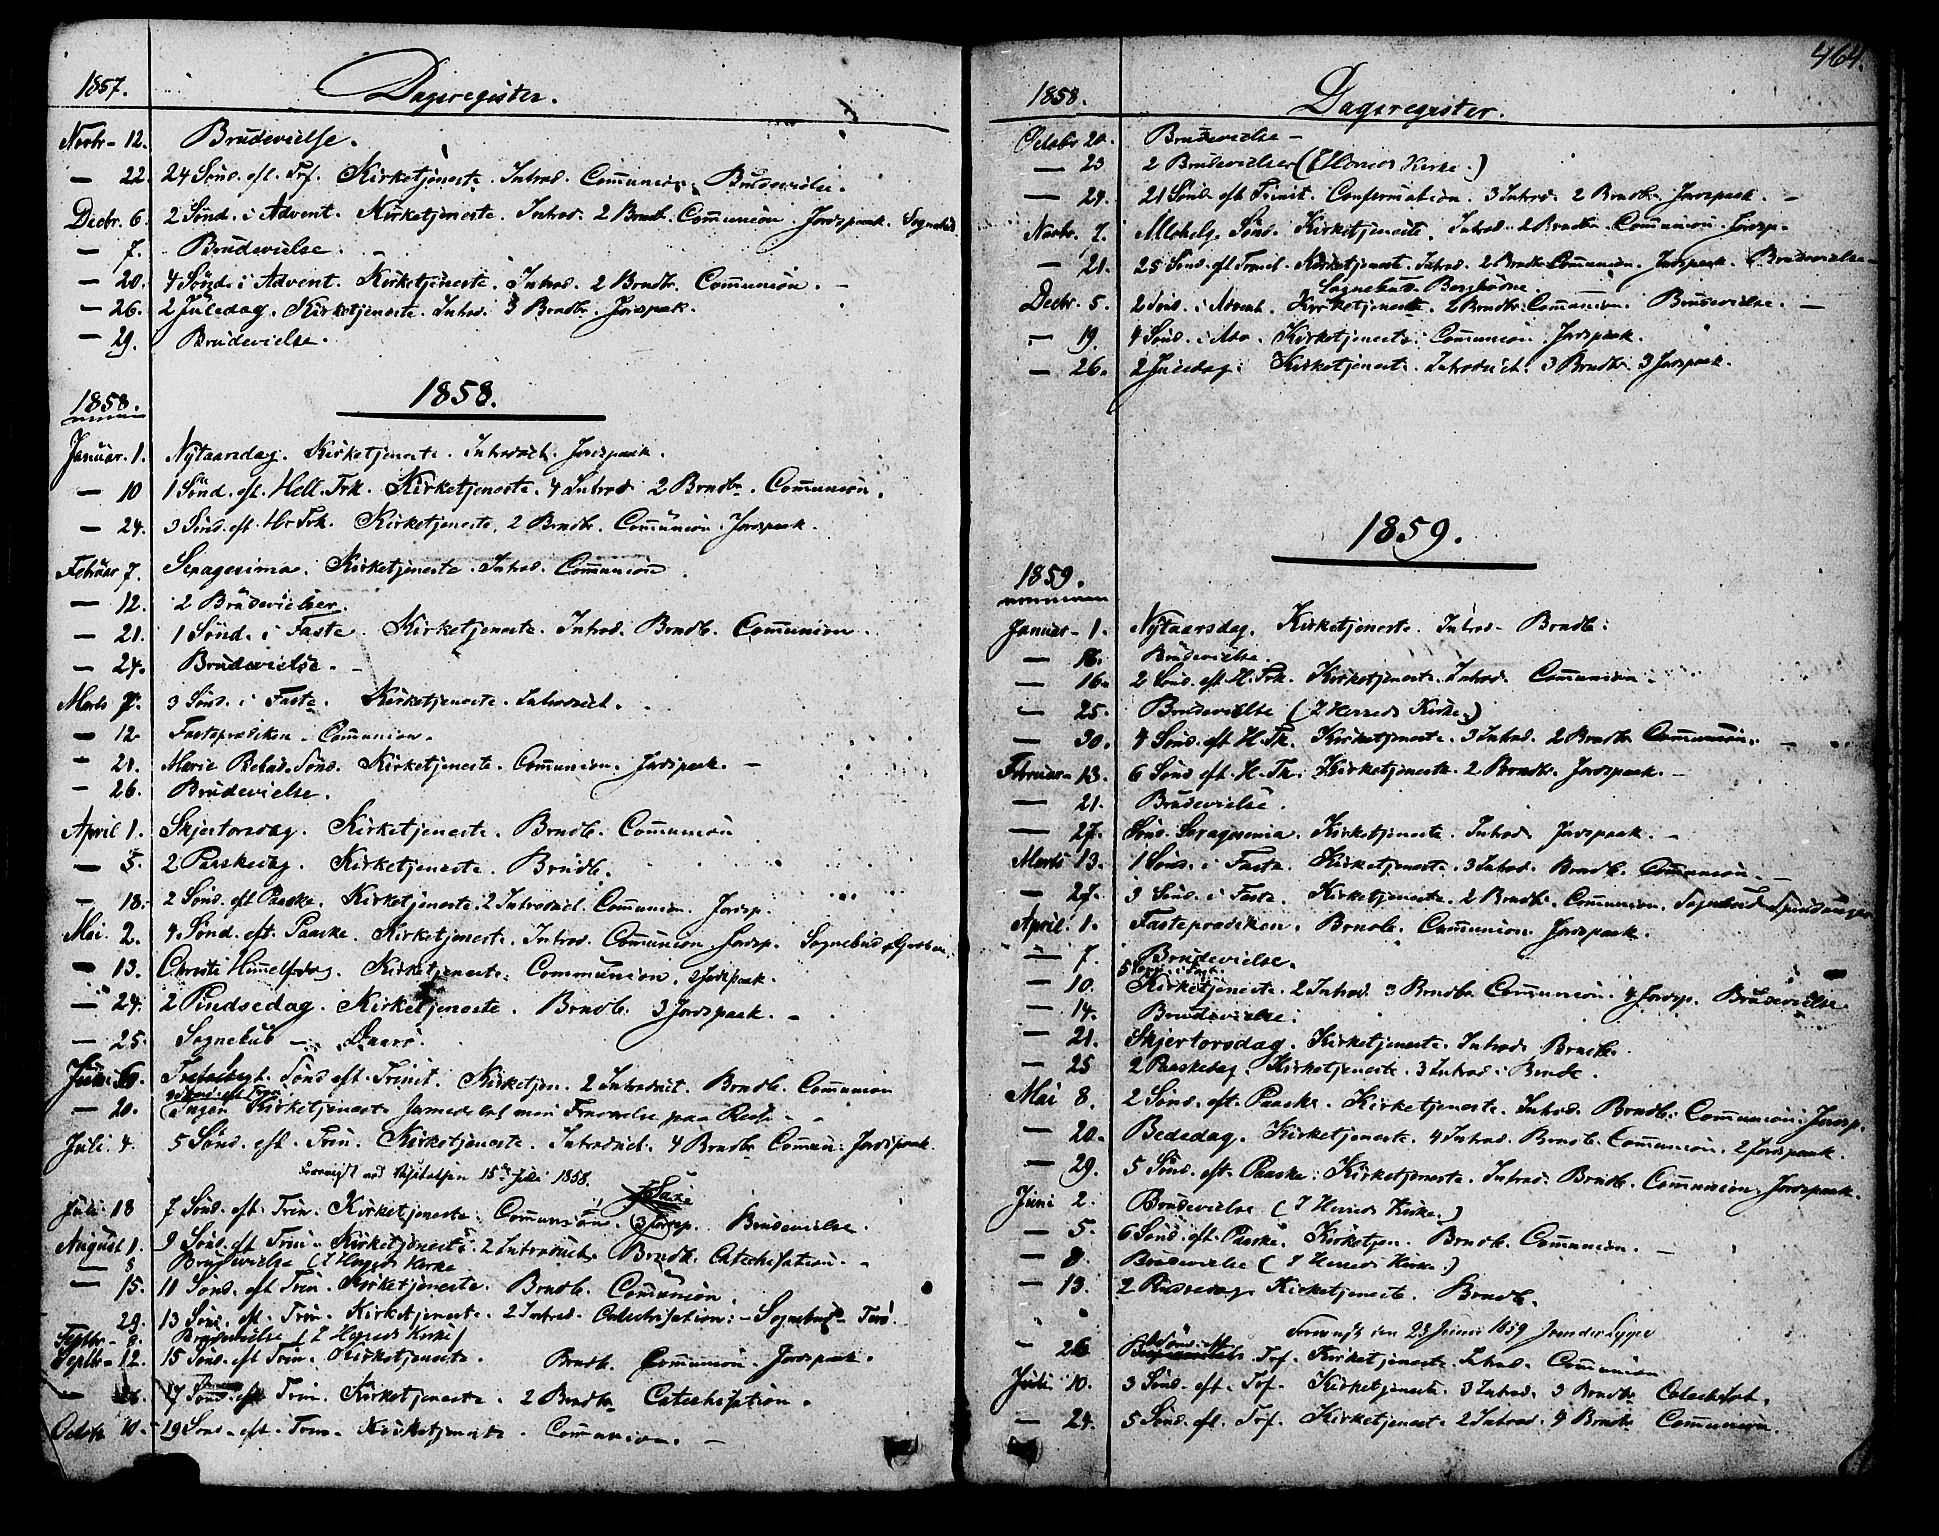 1857.
Dagsregister.
Novbr - 12. Brudevielse.
— 22. 24 Sönd. eft. Trf. Kirketjeneste. Introd. Communion. Brudevielse.
Decbr. 6. 2 Sönd. i Advent. Kirketjeneste. Introd. 2 Brndb. Communion. Jordspaak. Sognebud.
— 7. Brudevielse. -
— 20. 4 Sönd. i Advent. Kirketjeneste. Introd. 2 Brndb. Communion. -
— 26. 2 Juledag. Kirketjeneste. Introd. 3 Brndb. Jordspaak.
— 29. Brudevielse.
1858.
1858.
Januar. 1. Nytaarsdag. Kirketjeneste. Introduct. Jordspaak.
— 10 1 Sönd. eft. Hell. Trk. Kirketjeneste. 4 Introd. 2 Brndb. Communion.
— 24. 3 Sönd. eft. H. Trk. Kirketjeneste. 2 Brndb. Communion. Jordspaak.
Februar 7. Sexagesima. Kirketjeneste. Introd. Communion.
— 12. 2 Brudevielser.
— 21. 1 Sönd. i Faste. Kirketjeneste. Introd. Brndb. Communion.
— 24. Brudevielse. -
Marts 7. 3 Sönd. i Faste. Kirketjeneste. Introduct.
— 12. Fasteprædiken. Communion.
— 21. Mariæ Bebud. Sönd. Kirketjeneste. Communion. Jordspaak. -
— 26. Brudevielse.
April 1. Skjertorsdag. Kirketjeneste. Brndb. Communion
— 5. 2 Paaskedag. Kirketjeneste. Brndb.
— 18. 2 Sönd. eft Paaske. Kirketjeneste. 2 Introduct. Communion. Jordsp.
Mai. 2. 4. Sönd. eft. Paaske. Kirketjeneste. Introd. Communion. Jordsp. Sognebud
— 13. Christi Himmelfdag. Kirketjeneste. Communion. 2 Jordspaak.
— 24. 2 Pindsedag. Kirketjeneste. Brndb. 3 Jordspaak. -
— 25. Sognebud —
Juni 6. Sönd eft. Trinit. Kirketjen. 2 Introduct. Brndb. Communion
— 20. Ingen Kirketjeneste
Juli. 4. 5 Sönd. eft. Trin. Kirketjeneste. Introduct. 4 Brndb. Commun: Jordspaak.
Foreviist ved Visitatsen 15de Juli 1858.
Juli. 18 7 Sönd. eft. Trin. Kirketjeneste. Communion. (3 Jordsp. Brudevielse.
August 1. 9 Sönd. eft Trin. Kirketjeneste. 2 Introduct. Brndb. Catechisation. -
— 8 Brudevielse (I Herreds Kirke
— 15. 11 Sönd. eft Trin. Kirketjeneste. Brndb. Communion.
29. 13 Sönd. eft. Trin. Kirketjeneste. 2 Introd. Catechisation: - Sognebud -
Septbr - 9. Brudevielse (I Herreds Kirke)
Septbr - 12. 15 Sönd. eft Trin. Kirketjeneste. Brndb. Communion. Jordspaak.
— 26. 17 Sönd. eft Trin. Kirketjeneste. 2 Brndb. Catechisation.
Octobr 10. 19 Sönd. eft. Trin. Kirketjeneste. Communion. -
464.
1858.
Dagsregister.
Octobr 20. Brudevielse -
— 23 2 Brudevielser (I Herreds Kirke.)
— 24. 21 Sönd. eft Trinit. Confirmation. 3 Introd. 2 Brndb. Jordspaak. -
Novbr. 7. Allehelg. Sönd. Kirketjeneste. Introd. 2 Brndb. Communion. Jordsp.
— 21. 25 Sönd. eft Trinit. Kirketjeneste. Introd. 2 Brndb. Communion. Jordspaak. Brudevielse -
Sognebud.
Decbr. 5. 2 Sönd. i Advent. Kirketjeneste. 2 Brndb. Communion. Brudevielse. —
— 19. 4 Sönd. i Adv. Kirketjeneste. Communion. Jordspaak.
— 26. 2 Juledag. Kirketjeneste. Introduct. 3 Brndb. 3 Jordspaak.
1859.
1859.
Januar - 1. Nytaarsdag. Kirketjeneste. Introd. Brndb.
— Brudevielse.
— 16. 2 Sönd. eft H. Trk. Kirketjeneste. Introd. Communion. -
— 25. Brudevielse (I Herreds Kirke.)
— 30. 4 Sönd. eft H. Tk. Kirketjeneste. 3 Introd. 2 Brndb Communion. -
Februar - 13. 6 Sönd eft. H. Tk. Kirketjeneste. 2 Brndb. Jordspaak. -
— 21. Brudevielse.
— 27. Sönd. Sexagesima. Kirketjeneste. Introd. Jordspaak. -
Marts 13. 1 Sönd. i Faste. Kirketjeneste. 3 Introd. Brndb. Communion. -
— 27. 3 Sönd. i Faste. Kirketjeneste. 2 Brndb. Communion. Sognebud
April. 1. Fasteprædiken. Brndb. Communion. Jordspaak.
— 7. Brudevielse.
5 Sönd. i Fast.
— 10. Kirketjeneste. 2 Introd. 3 Brndb. Communion. 4 Jordsp. Brudevielse
— 14. Brudevielse.
— 21. Skjertorsdag. Kirketjeneste. Introd. Brndb.
— 25 2 Paaskedag. Kirketjeneste. 3 Introd. Brndb.
Mai 8. 2 Sönd. eft. Paaske. Kirketjeneste. Introd. Brndb. Communion. Jordsp.
— 20. Bededag. Kirketjeneste. 4 Introd. Brndb. Communion. 2 Jordspaak.
— 29. 5 Sönd. eft. Paaske. Kirketjeneste. Introd. Brndb. Communion. Jordspaak.
Juni 2. Brudevielse (I Herreds Kirke.)
— 5. 6 Sönd. eft. Paaske. Kirketjen. Brndb. Communion. -
— 8. Brudevielse (I Herreds Kirke.)
— 13. 2 Pindsedag. Kirketjeneste. Brndb.
— 26 Trf. Kirketjeneste. Introd. Communion
Juli 10. 3 Sönd. eft. Trf. Kirketjeneste. 3 Introd. 3 Brndb. Catechisat.
— 24. 5 Sönd. eft. Trf. Kirketjeneste 2 Introd. 4 Brndb. Communion.